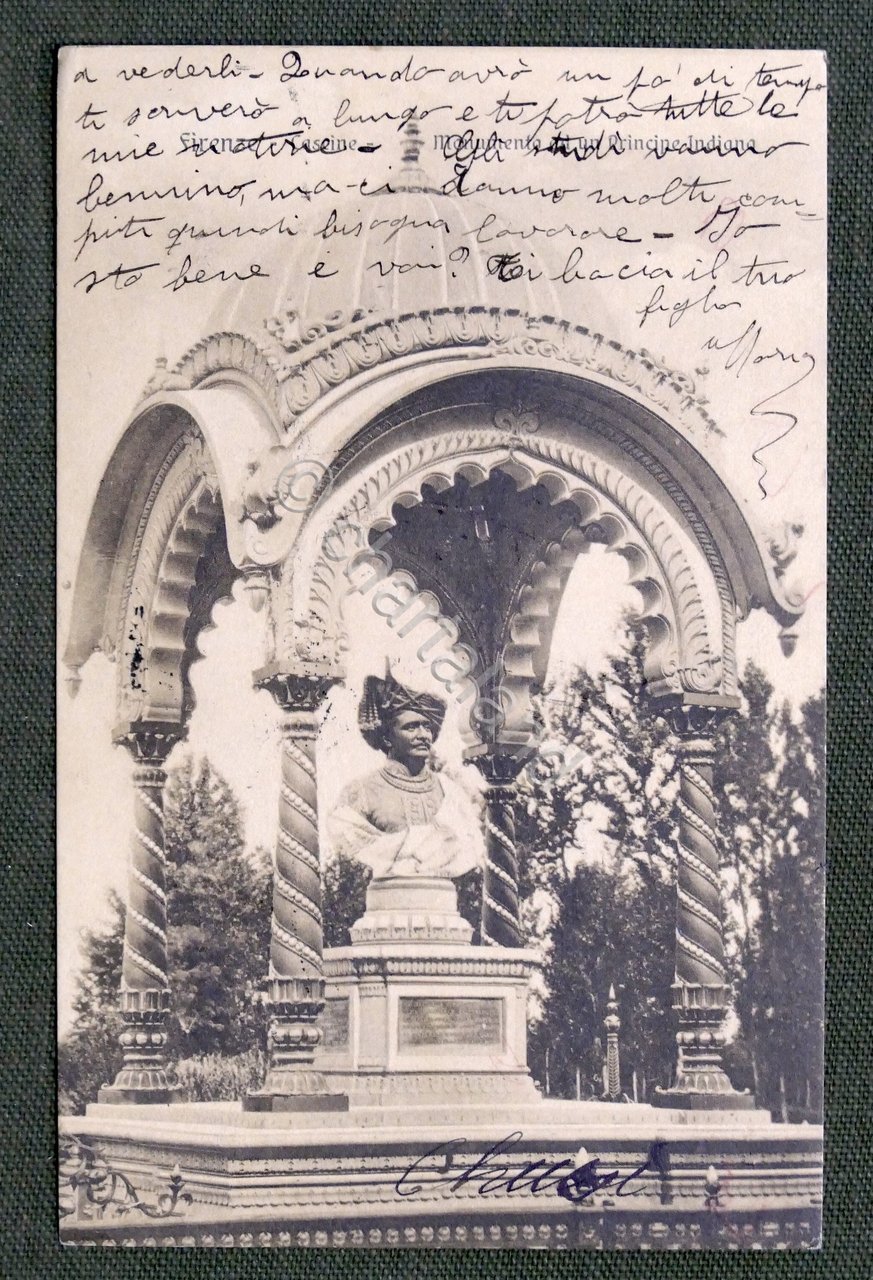 a vederli - Quando avrò un pò di tempo
ti scriverò a lungo e ti potrò tutte le
mie notizie - Gli studi vanno
Firenze - Cascine - Monumento ad un Principe Indiano
benino, ma ci danno molti com-
piti quindi bisogna lavorare - Io
sto bene e voi? Ti bacia il tuo
figlio
Mario
© chamalok